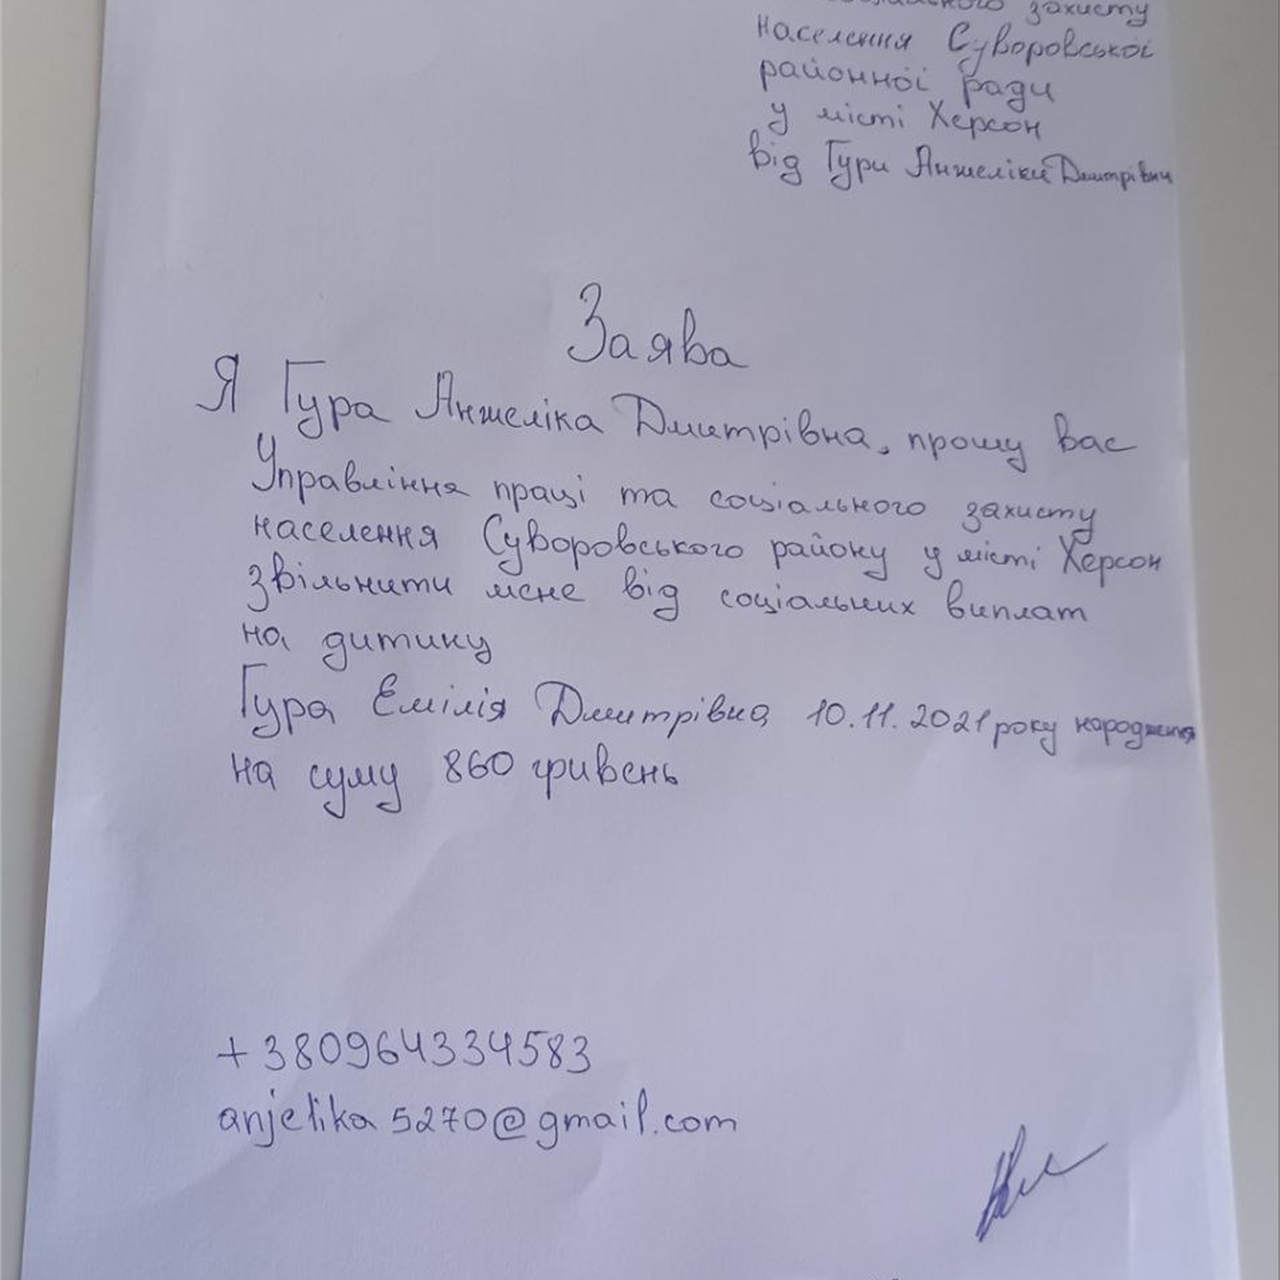 захисту
населення Суворовської
районної ради
у місті Херсон
від Гури Анжеліки Дмитрівни
Заява
Я Гура Анжеліка Дмитрівна, прошу вас
Управління праці та соціального захисту
населення Суворовського району у місті Херсон
звільнити мене від соціальних виплат
на дитину
Гура Емілія Дмитрівна 10.11.2021 року народження
на суму 860 гривень
+380964334583
anjelika5270@gmail.com